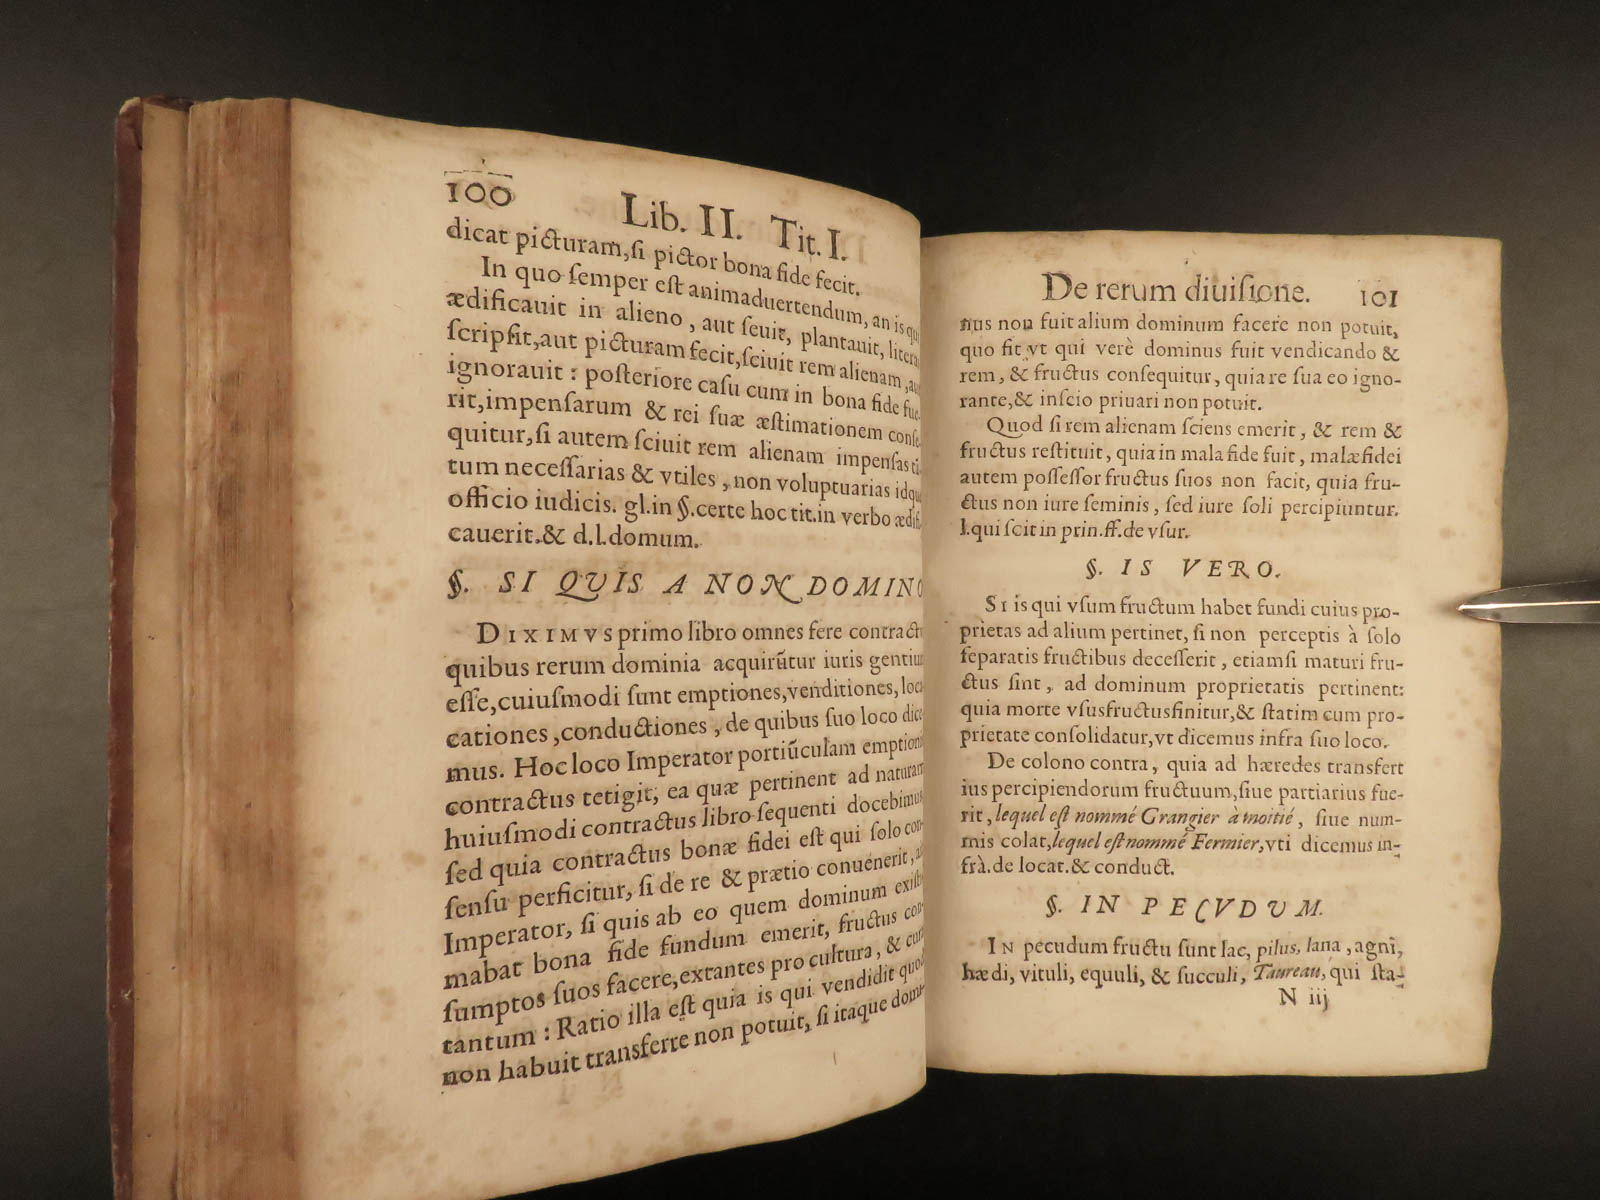 100
Lib. II. Tit. I.
dicat picturam, ſi pictor bona fide fecit.
In quo ſemper eſt animaduertendum, an is qui
ædificauit in alieno, aut ſeuit, plantauit, litera
ſcripſit, aut picturam fecit, ſciuit rem alienam, au
ignorauit : poſteriore caſu cum in bona fide fue
rit, impenſarum & rei ſuæ æſtimationem conſe
quitur, ſi autem ſciuit rem alienam impenſas ti
tum neceſſarias & vtiles, non voluptuarias idqu
officio iudicis. gl. in §. certe hoc tit. in verbo ædifi
cauerit. & d. l. domum.
§. SI QUIS A NON DOMINO
DIXIMVS primo libro omnes fere contractu
quibus rerum dominia acquirũtur iuris gentium
eſſe, cuiuſmodi ſunt emptiones, venditiones, loca
cationes, conductiones, de quibus ſuo loco dice
mus. Hoc loco Imperator portiũculam emptionis
contractus tetigit, ea quæ pertinent ad naturam
huiuſmodi contractus libro ſequenti docebimus
ſed quia contractus bonæ fidei eſt qui ſolo con-
ſenſu perficitur, ſi de re & prætio conuenerit, a
Imperator, ſi quis ab eo quem dominum exiſti
mabat bona fide fundum emerit, fructus con-
ſumptos ſuos facere, extantes pro cultura, & cura
tantum : Ratio illa eſt quia is qui vendidit quod
non habuit transferre non potuit, ſi itaque domi-
De rerum diuiſione. 101
nus non fuit alium dominum facere non potuit,
quo fit vt qui verè dominus fuit vendicando &
rem, & fructus conſequitur, quia re ſua eo igno-
rante, & inſcio priuari non potuit.
Quod ſi rem alienam ſciens emerit, & rem &
fructus reſtituit, quia in mala fide fuit, malæ fidei
autem poſſeſſor fructus ſuos non facit, quia fru-
ctus non iure ſeminis, ſed iure ſoli percipiuntur.
l. qui ſcit in prin. ff. de vſur.
§. IS VERO.
SI is qui vſum fructum habet fundi cuius pro-
prietas ad alium pertinet, ſi non perceptis à ſolo
ſeparatis fructibus deceſſerit, etiamſi maturi fru-
ctus ſint, ad dominum proprietatis pertinent:
quia morte vſusfructus finitur, & ſtatim cum pro-
prietate conſolidatur, vt dicemus infra ſuo loco.
De colono contra, quia ad hæredes transfert
ius percipiendorum fructuum, ſiue partiarius fue-
rit, lequel eſt nommé Grangier à moitié, ſiue num-
mis colat, lequel eſt nommé Fermier, vti dicemus in-
frà. de locat. & conduct.
§. IN PECVDVM.
IN pecudum fructu ſunt lac, pilus, lana, agni,
hædi, vituli, equuli, & ſucculi, Taureau, qui ſta-
N iij